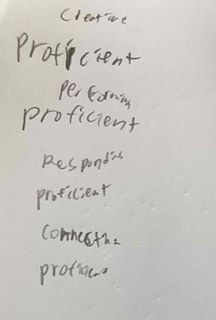 Creative
Proficient
Performing
proficient
Responding
proficient
connecting
proficient